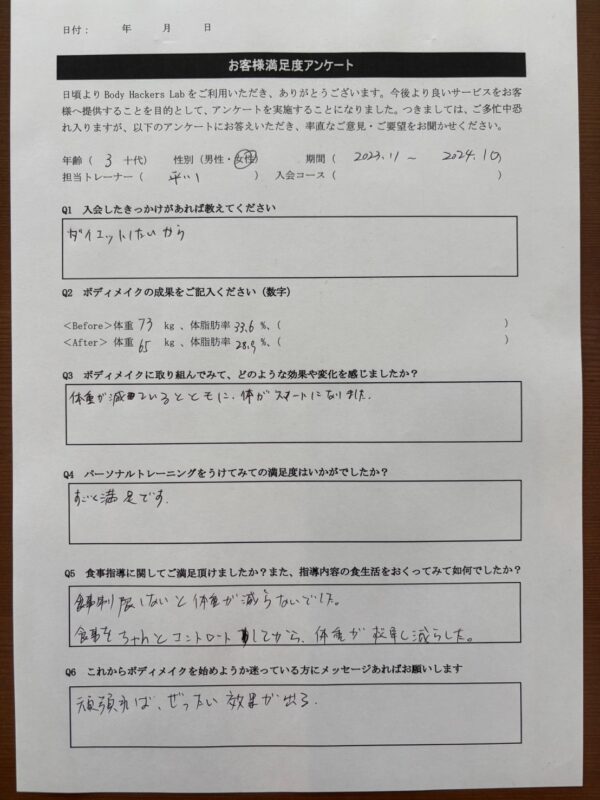 日付： 年 月 日
お客様満足度アンケート
日頃より Body Hackers Lab をご利用いただき、ありがとうございます。今後より良いサービスをお客
様へ提供することを目的として、アンケートを実施することになりました。つきましては、ご多忙中恐
れ入りますが、以下のアンケートにお答えいただき、率直なご意見・ご要望をお聞かせください。
年齢（ 3 十代） 性別（男性・女性） 期間（ 2023.11 ～ 2024.10）
担当トレーナー（ 平い ） 入会コース（ ）
Q1 入会したきっかけがあれば教えてください
ダイエットしたいから
Q2 ボディメイクの成果をご記入ください（数字）
＜Before＞体重 73 kg 、体脂肪率 33.6 %、（ ）
＜After＞ 体重 65 kg 、体脂肪率 28.9 %、（ ）
Q3 ボディメイクに取り組んでみて、どのような効果や変化を感じましたか？
体重が減ているとともに、体がスマートになりました.
Q4 パーソナルトレーニングをうけてみての満足度はいかがでしたか？
すごく満足です.
Q5 食事指導に関してご満足頂けましたか？また、指導内容の食生活をおくってみて如何でしたか？
食事制限しないと体重が減らないでした。
食事をちゃんとコントロートしてから、体重が 減らした。
Q6 これからボディメイクを始めようか迷っている方にメッセージあればお願いします
頑張れば、ぜったい効果が出る.